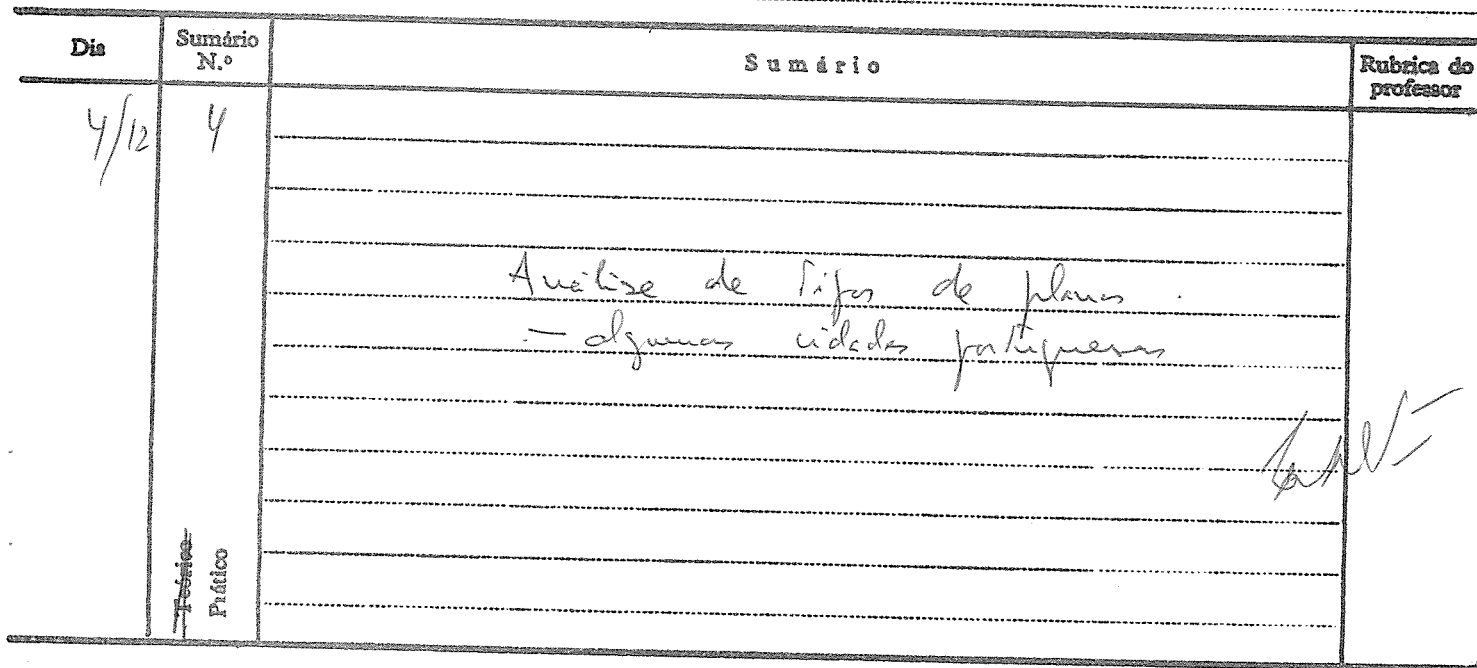 Dia
Sumário N.º
Sumário
Rubrica do professor
4/12
4
Análise de Tipos de planos.
— algumas cidades portuguesas
Teórico
Prático